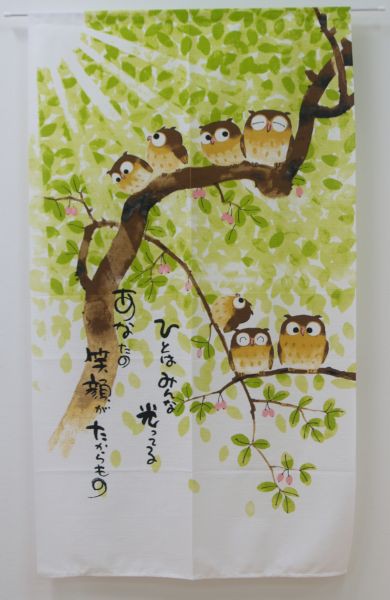 ひとは みんな
光ってる
あなたの
笑顔が
たからもの